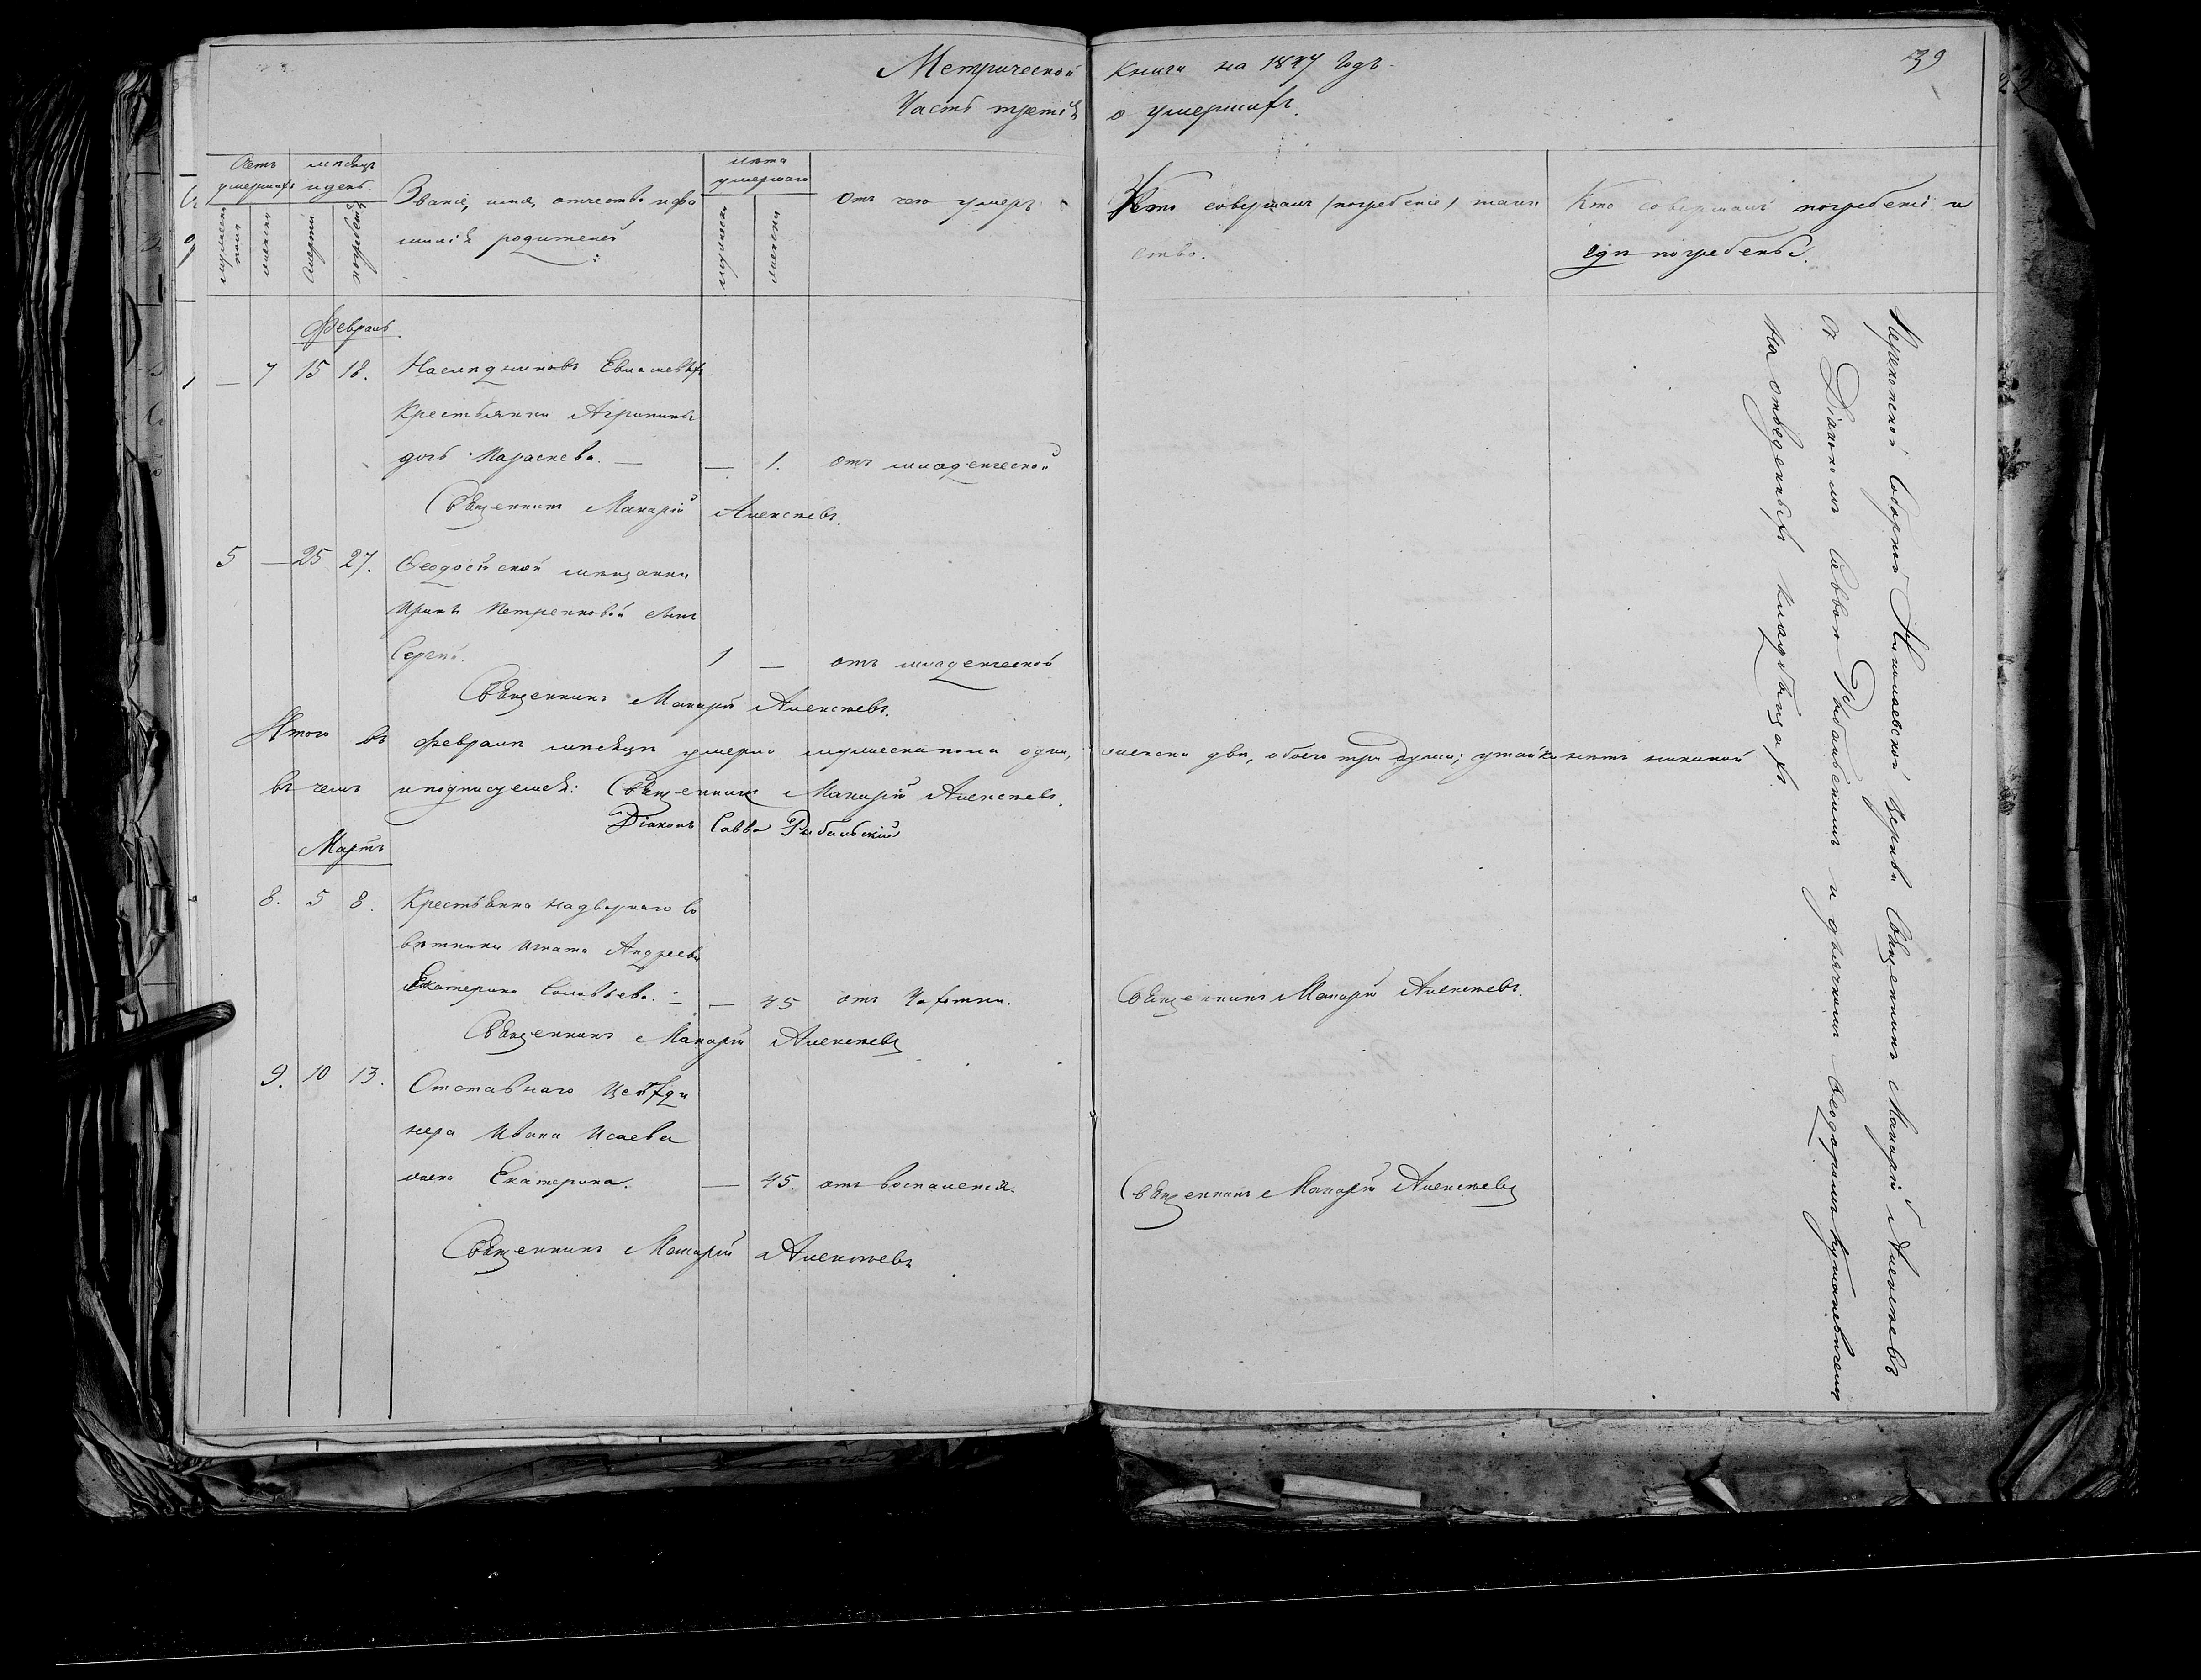 Метрической Книги на 1847 Годъ.
39
Часть третія о умершихъ.
Счетъ умершихъ
мужеска пола
женска
мѣсяцъ и день.
смерти
погребенія
Званіе, имя, отчество и фа
милія родителей
лѣта умершаго
мужеска
женска
Отъ чего умеръ
Кто совершалъ (погребеніе) таин
ство.
Кто совершалъ погребеніе и
гдѣ погребены.
Февраль
— 7 15 18. Наслѣдниковъ
крестьянки Агрипины
дочь Параскева. — — 1. отъ младенческой
Священникъ Макарій Алексѣевъ.
5 — 25 27. Феодосійской мѣщанки
Ирины Петренковой сынъ
Сергій. 1 — отъ младенческой
Священникъ Макарій Алексѣевъ.
Итого въ Февралѣ мѣсяцѣ умерло мужеска пола одинъ, женска двѣ, обоего три души; утайки нѣтъ никакой
въ чемъ и подписуемся: Священникъ Макарій Алексѣевъ.
Діаконъ Савва Рыбальскій
Мартъ
8. 5 8. Крестьянка надворнаго со
вѣтника Игната Андреева
Екатерина Соловьева. — — 45 отъ Чахотки. Священникъ Макарій Алексѣевъ.
Священникъ Макарій Алексѣевъ
9. 10 13. Отставнаго
нера Ивана Исаева
жена Екатерина. — 45. отъ воспаленія. Священникъ Макарій Алексѣевъ
Священникъ Макарій Алексѣевъ
Перекопской Соборной Николаевской Церкви Священникъ Макарій Алексѣевъ
съ Діакономъ Саввою Рыбальскимъ и дьячкомъ Феодоромъ
на отведенныхъ кладбищахъ.